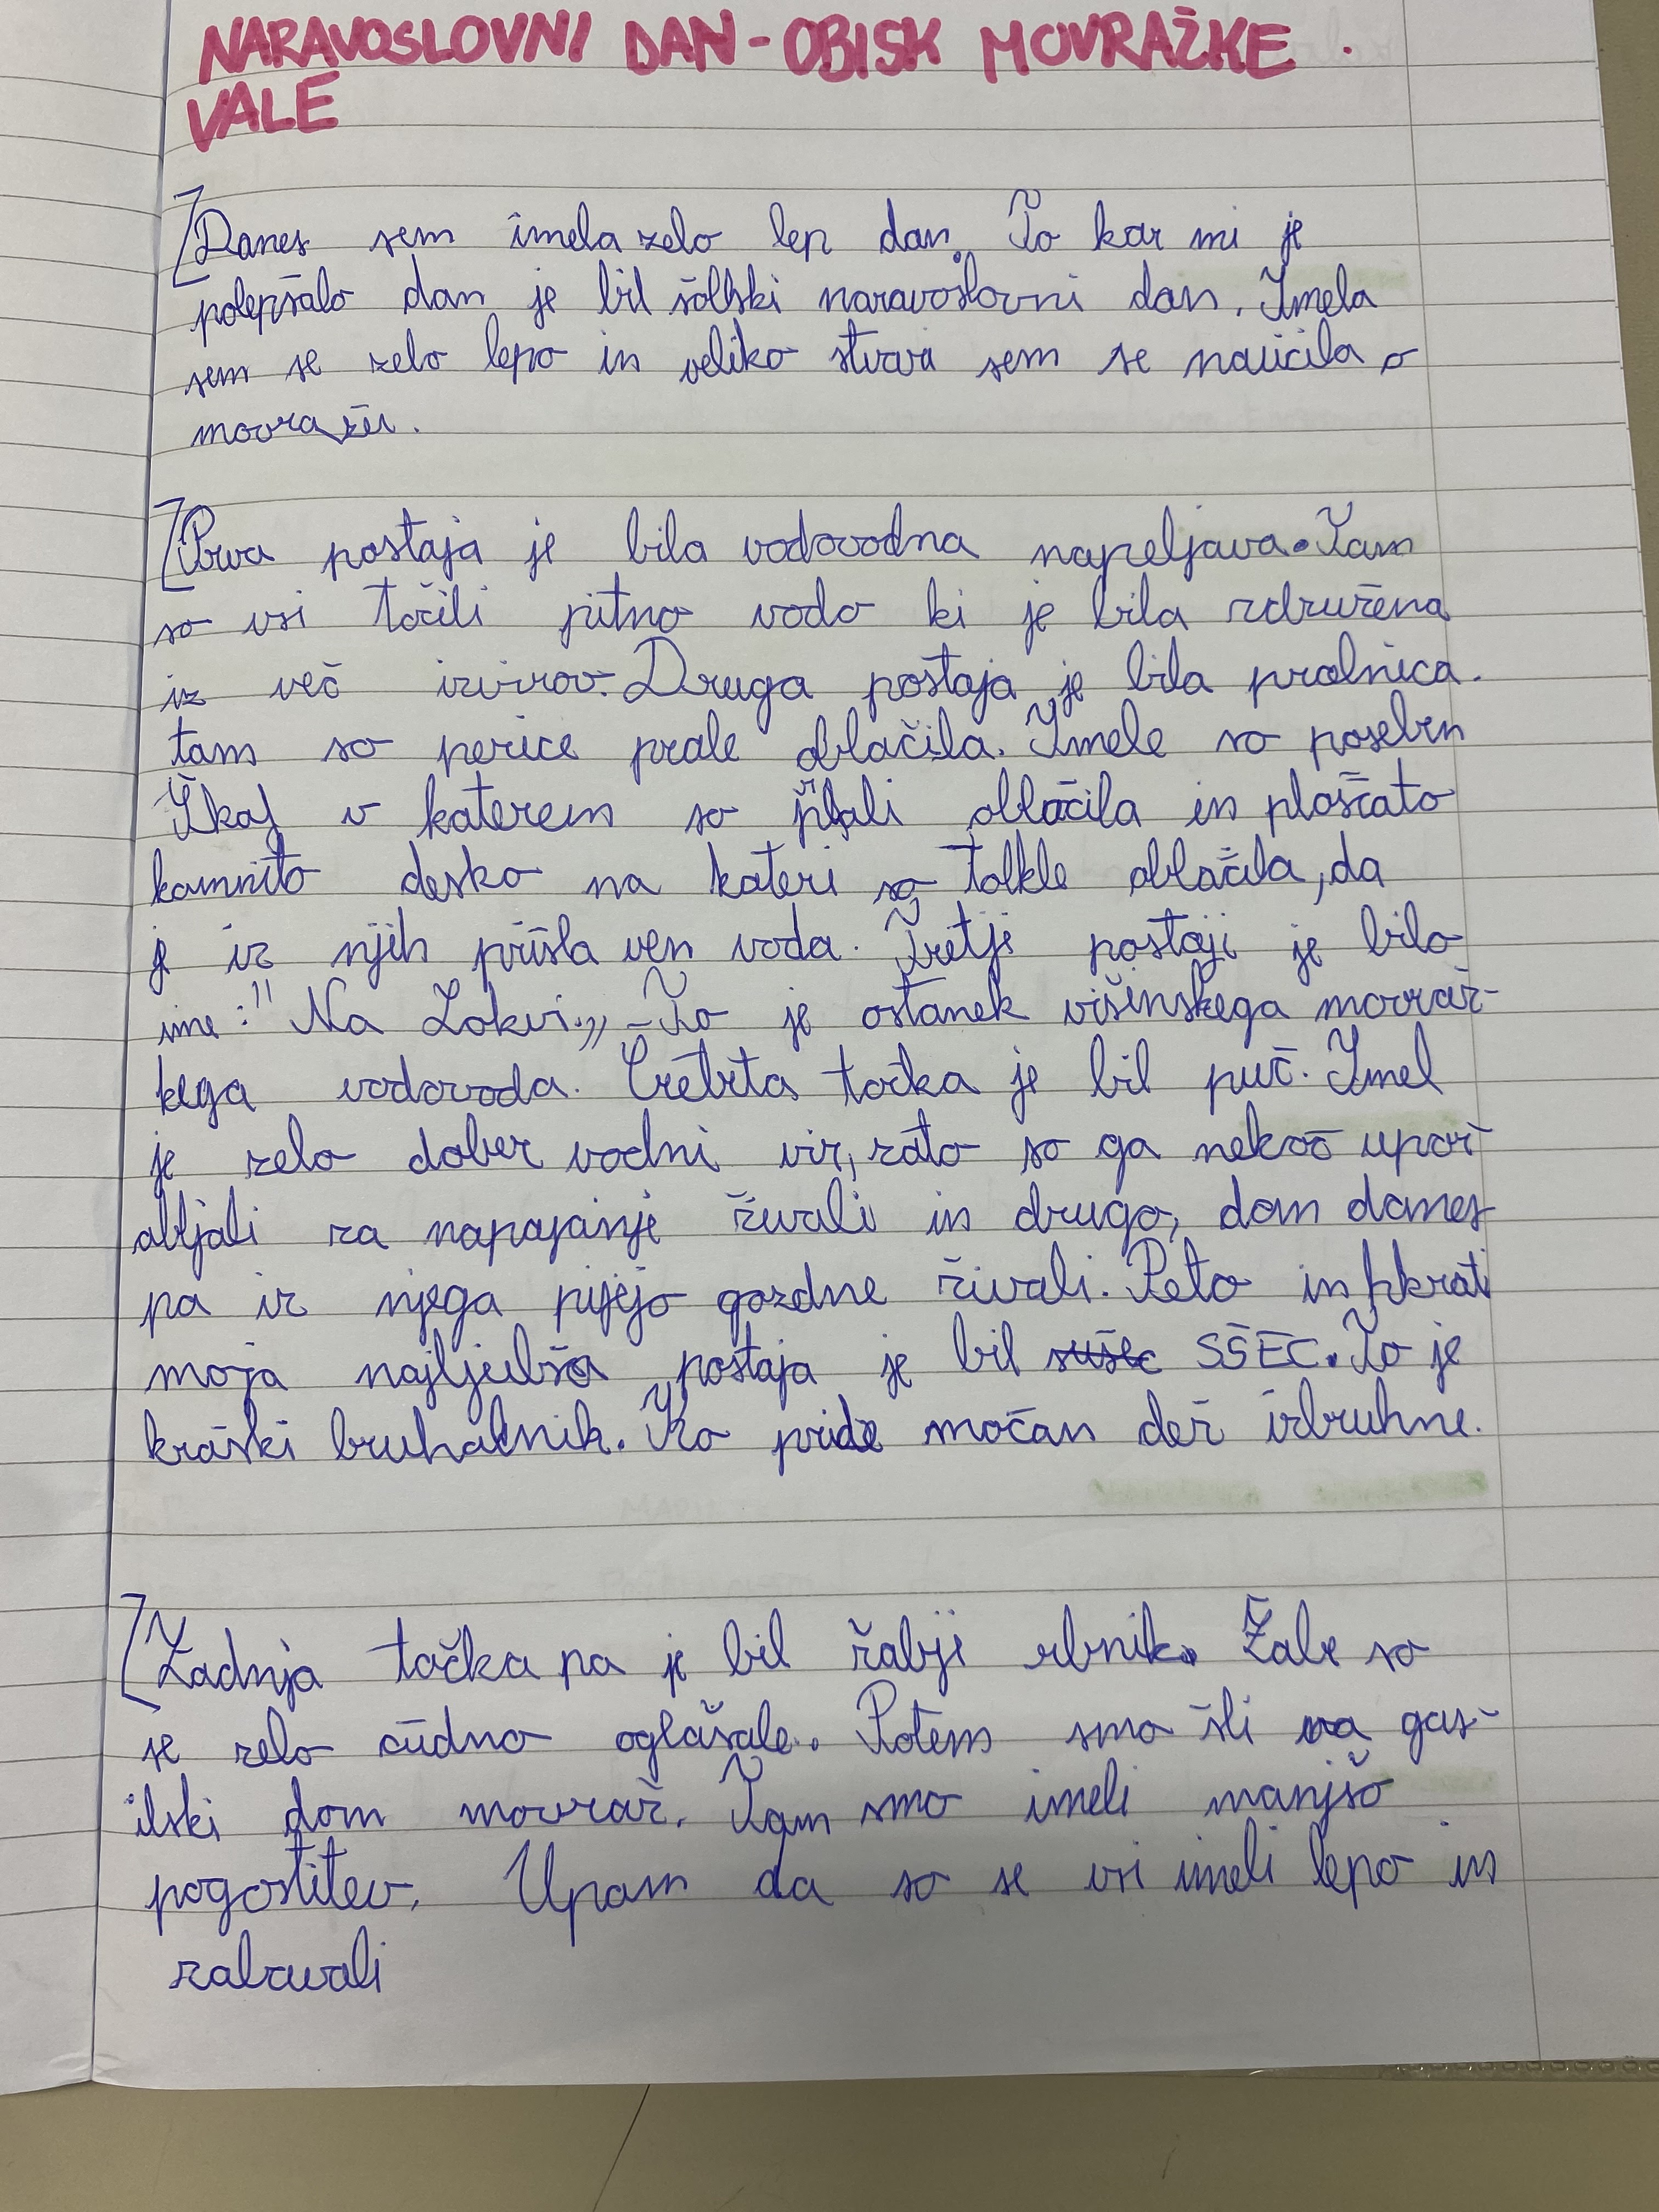 NARAVOSLOVNI DAN - OBISK MOVRAŽKE
VALE
Danes sem imela zelo lep dan. To kar mi je
polepšalo dan je bil šolski naravoslovni dan. Imela
sem se zelo lepo in veliko stvari sem se naučila o
movražu.
Prva postaja je bila vodovodna napeljava. Tam
so vsi točili pitno vodo ki je bila združena
iz več izvirov. Druga postaja je bila pralnica.
tam so perice prale oblačila. Imele so poseben
v katerem so oblačila in ploščato
kamnito desko na kateri so tolkle oblačila, da
je iz njih prišla ven voda. Tretji postaji je bilo
ime: "Na Lokvi." - To je ostanek višinskega movraž-
kega vodovoda. Četrta točka je bil puč. Imel
je zelo dober vodni vir, zato so ga nekoč upor-
abljali za napajanje živali in drugo, dan danes
pa iz njega pijejo gozdne živali. Peto in hkrati
moja najljubša postaja je bil SŠEC. To je
kraški bruhalnik. Ko pride močan dež izbruhne.
Zadnja točka pa je bil žabji ribnik. Žabe so
se zelo čudno oglašale. Potem smo šli na gas-
ilski dom movraž. Tam smo imeli manjšo
pogostitev. Upam da so se vsi imeli lepo in
zabavali